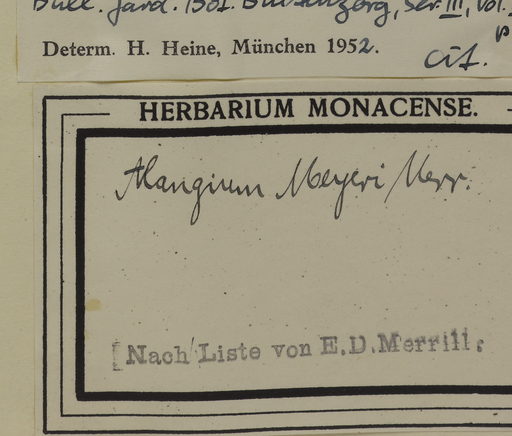 Bull. Jard. Bot. Buitenzorg, Ser. III, Vol.
Determ. H. Heine, München 1952.
cit.
HERBARIUM MONACENSE.
Alangium Meyeri Merr.
[Nach Liste von E.D.Merrill: